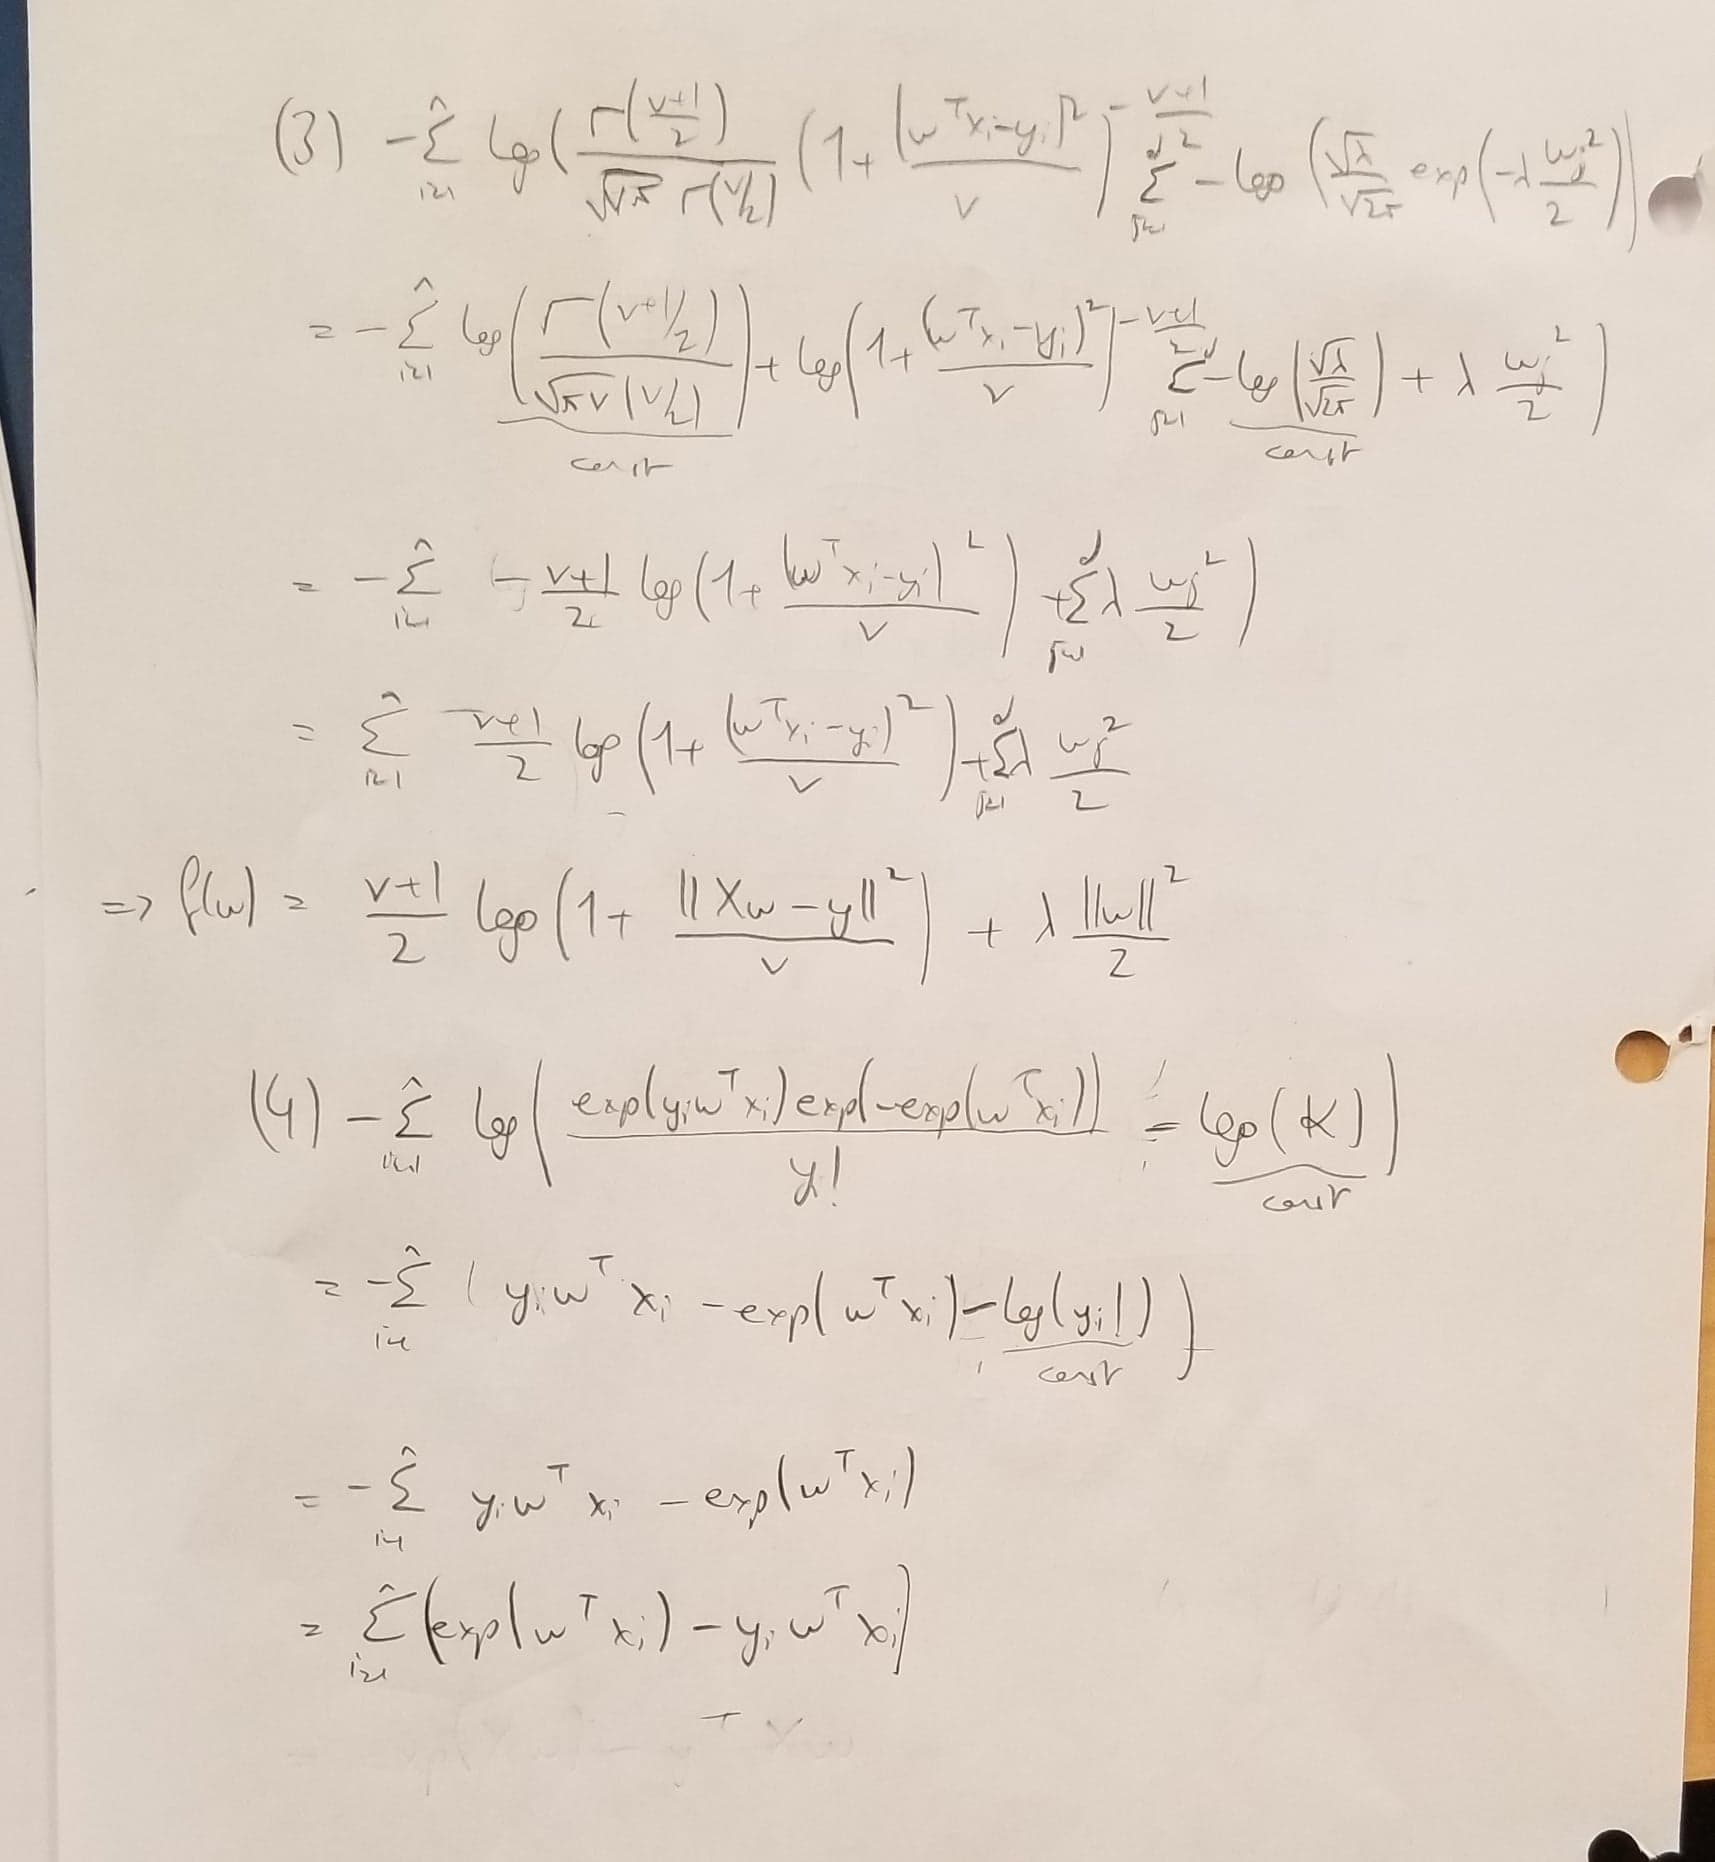 (3) -Σ_{i=1}^n log( Γ(v+1/2) / √vπ Γ(v/2) (1 + (w^T x_i - y_i)^2 / v)^{-v+1/2} Σ_{j=1}^d - log( √λ / √2π exp(-λ w_j^2 / 2))
= -Σ_{i=1}^n log( Γ(v+1/2) / √πv (v/2) ) + log(1 + (w^T x_i - y_i)^2 / v)^{-v+1/2} Σ_{j=1}^d - log( √λ / √2π ) + λ w_j^2 / 2 )
const const
= -Σ_{i=1}^n (- v+1 / 2 log(1 + (w^T x_i - y_i)^2 / v) + Σ_{j=1}^d λ w_j^2 / 2 )
= Σ_{i=1}^n v+1 / 2 log(1 + (w^T x_i - y_i)^2 / v) + Σ_{j=1}^d λ w_j^2 / 2
=> f(w) = v+1 / 2 log(1 + ||Xw - y||^2 / v) + λ ||w||^2 / 2
(4) -Σ_{i=1}^n log( exp(y_i w^T x_i) exp(-exp(w^T x_i)) / y_i! - log(K) )
const
= -Σ_{i=1}^n ( y_i w^T x_i - exp(w^T x_i) - log(y_i!) )
const
= -Σ_{i=1}^n y_i w^T x_i - exp(w^T x_i)
= Σ_{i=1}^n (exp(w^T x_i) - y_i w^T x_i)